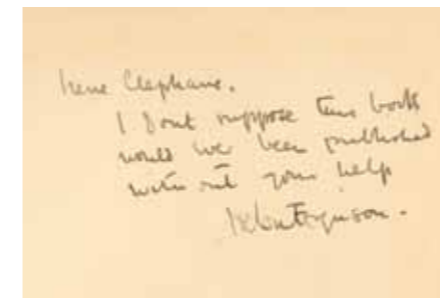 Irene Clephane.
I dont suppose this book
would ever been published
without your help
Helen Ferguson.